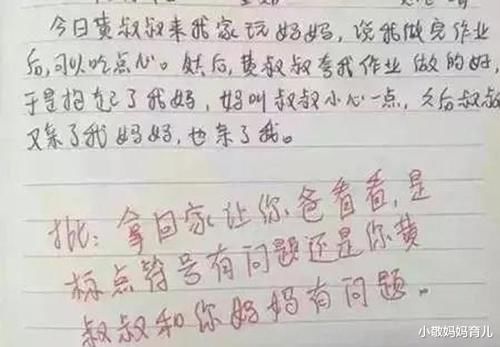 今日黄叔叔来我家玩妈妈，说我做完作业
后，可以吃点心。然后，黄叔叔夸我作业做的好，
于是抱起了我妈，妈叫叔叔小心一点，后叔叔
又亲了我妈妈，也亲了我。
批：拿回家让你爸看看，是
标点符号有问题还是你黄
叔叔和你妈妈有问题。
妈妈育儿